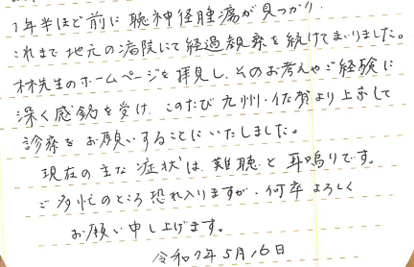 1年半ほど前に聴神経腫瘍が見つかり、
これまで地元の病院にて経過観察を続けてまいりました。
林先生のホームページを拝見し、そのお考えやご経験に
深く感銘を受け、このたび九州・佐賀より上京して
診察をお願いすることにいたしました。
現在の主な症状は、難聴と耳鳴りです。
ご多忙のところ恐れ入りますが、何卒よろしく
お願い申し上げます。
令和7年5月16日